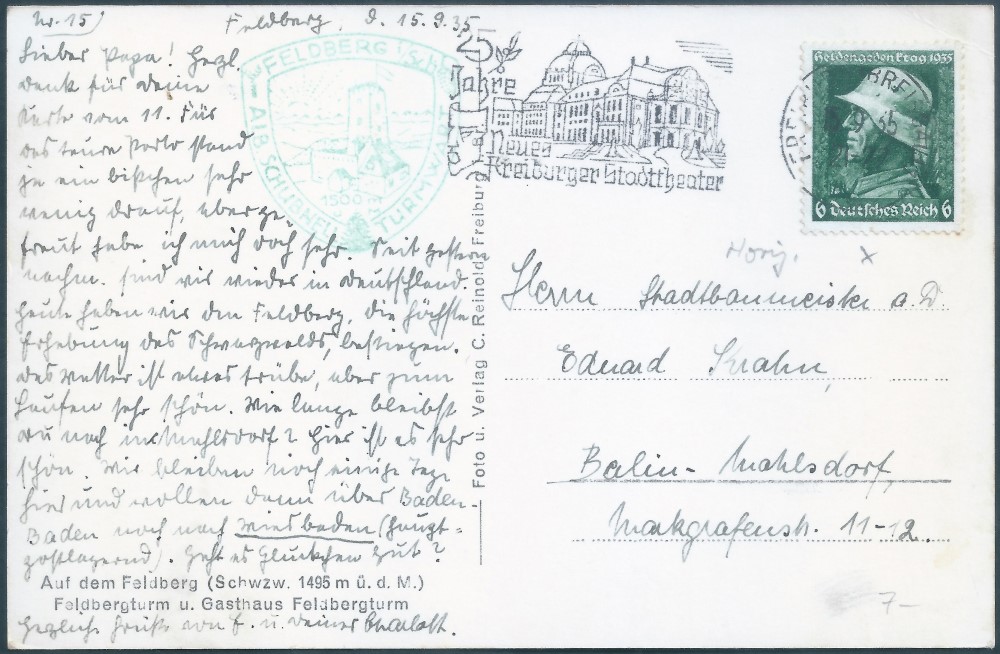 Nr. 15)
Feldberg, d. 15.9.35
Lieber Papa! Herzl.
Dank für Deine
Karte vom 11. Für
das teure Porto stand
ja ein bißchen sehr
wenig drauf, aber ge-
freut habe ich mich doch sehr. Seit gestern
nachm. sind wir wieder in Deutschland.
Heute haben wir den Feldberg, die höchste
Erhebung des Schwarzwalds, bestiegen.
Das Wetter ist etwas trübe, aber zum
Laufen sehr schön. Wie lange bleibst
Du noch in Mahlsdorf? Hier ist es sehr
schön. Wir bleiben noch einige Tage
hier und wollen dann über Baden-
Baden noch nach Wiesbaden (haupt-
postlagernd). Geht es Gluckchen gut?
Auf dem Feldberg (Schwzw. 1495 m ü. d. M.)
Feldbergturm u. Gasthaus Feldbergturm
Herzliche Grüße von E. u. Deiner Charlott.
FELDBERG i/Schw.
ALB. SCHUBNELL
TURMWART
1500 m
Foto u. Verlag C. Reinold, Freiburg i. B.
25
Jahre
Neues
Freiburger Stadttheater
Heldengedenktag 1935
6 Deutsches Reich 6
Horig. x
Herrn Stadtbaumeister a. D.
Eduard Krahn,
Berlin-Mahlsdorf,
Markgrafenstr. 11-12.
7-